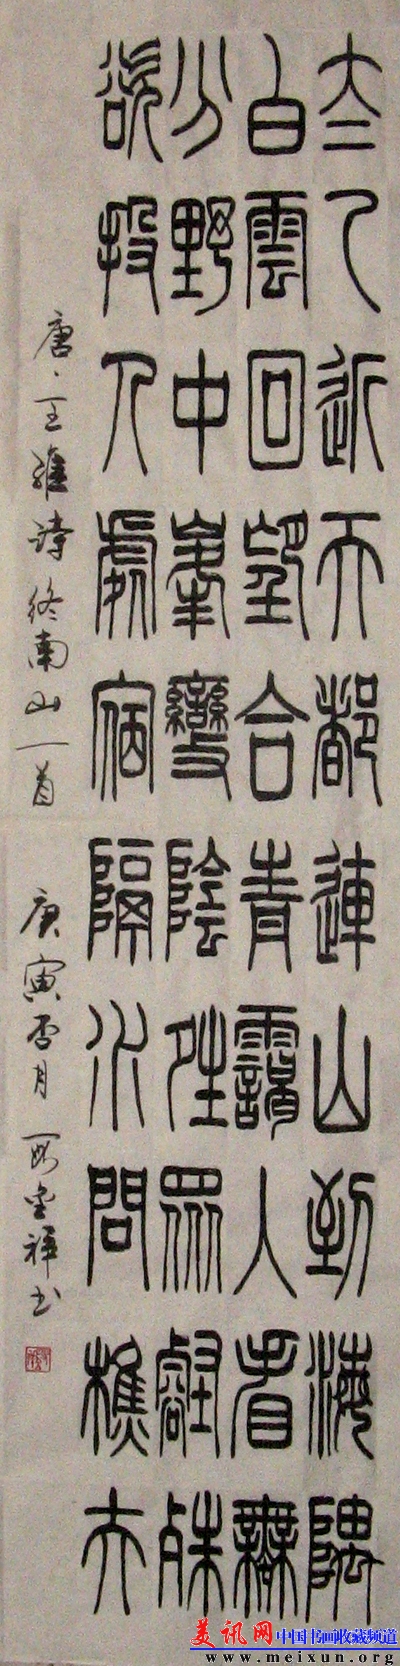 太乙近天都連山到海隅
白雲回望合青靄人看無
分野中峯變陰晴眾壑殊
欲投人處宿隔水問樵夫
唐·王維詩終南山一首 庚寅杏月 祥书
美讯网 中国书画收藏频道
www.meixun.org